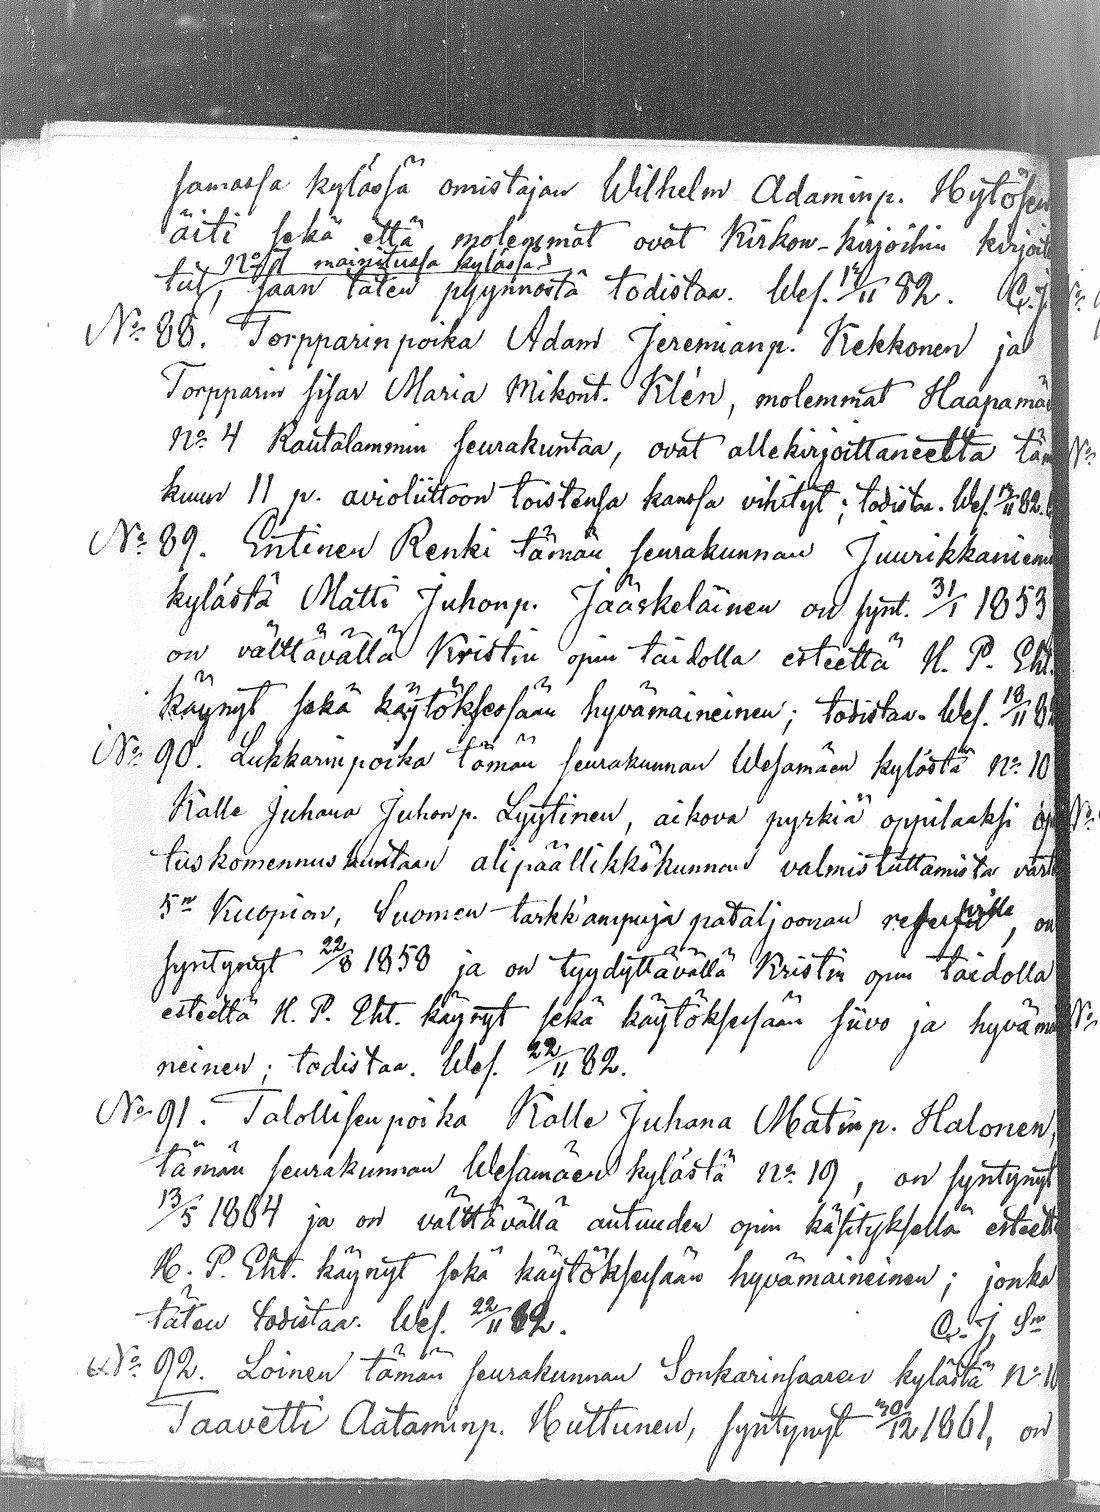 samassa kylässä omistajan Wilhelm Adaminp. Hytösen
äiti sekä että molemmat ovat Kirkon-kirjoihin kirjoite
mainitussa kylässä
tut, saan täten pyynnöstä todistaa. Wes. 17/11 82. C. J.
No. 88. Torpparinpoika Adam Jeremianp. Kekkonen ja
Torpparin sisar Maria Mikont. Klén, molemmat Haapamäe
no. 4 Rautalammin seurakuntaa, ovat allekirjoittaneelta täm
kuun 11 p. avioliittoon toistensa kanssa vihityt; todistaa. Wes. 17/11 82.
No. 89. Entinen Renki tämän seurakunnan Juurikkaniemi
kylästä Matti Juhonp. Jääskeläinen on synt. 31/1 1853
on välttävällä Kristin opin taidolla esteettä H. P. Eht.
käynyt sekä käytöksessään hyvämaineinen; todistaa. Wes. 18/11 82
No. 90. Lukkarinpoika tämän seurakunnan Wesamäen kylästä no. 10
Kalle Juhana Juhonp. Lyytinen, aikova pyrkiä oppilaaksi op
tuskomennuskuntaan alipäällikkökunnan valmistuttamista vart
5n Kuopion, Suomen tarkk'ampuja pataljoonan on
syntynyt 22/8 1858 ja on tyydyttävällä Kristin opin taidolla
esteettä H. P. Eht. käynyt sekä käytöksessään siivo ja hyvämai
neinen; todistaa. Wes. 22/11 82.
No. 91. Talollisenpoika Kalle Juhana Matinp. Halonen,
tämän seurakunnan Wesamäen kylästä no. 19, on syntynyt
13/5 1864 ja on välttävällä autuuden opin käsityksellä esteettä
H. P. Eht. käynyt sekä käytöksessään hyvämaineinen; jonka
täten todistaa. Wes. 22/11 82. C. J. Sm
No. 92. Loinen tämän seurakunnan Sonkarinsaaren kylästä no. 1
Taavetti Aataminp. Huttunen, syntynyt 30/12 1861, on